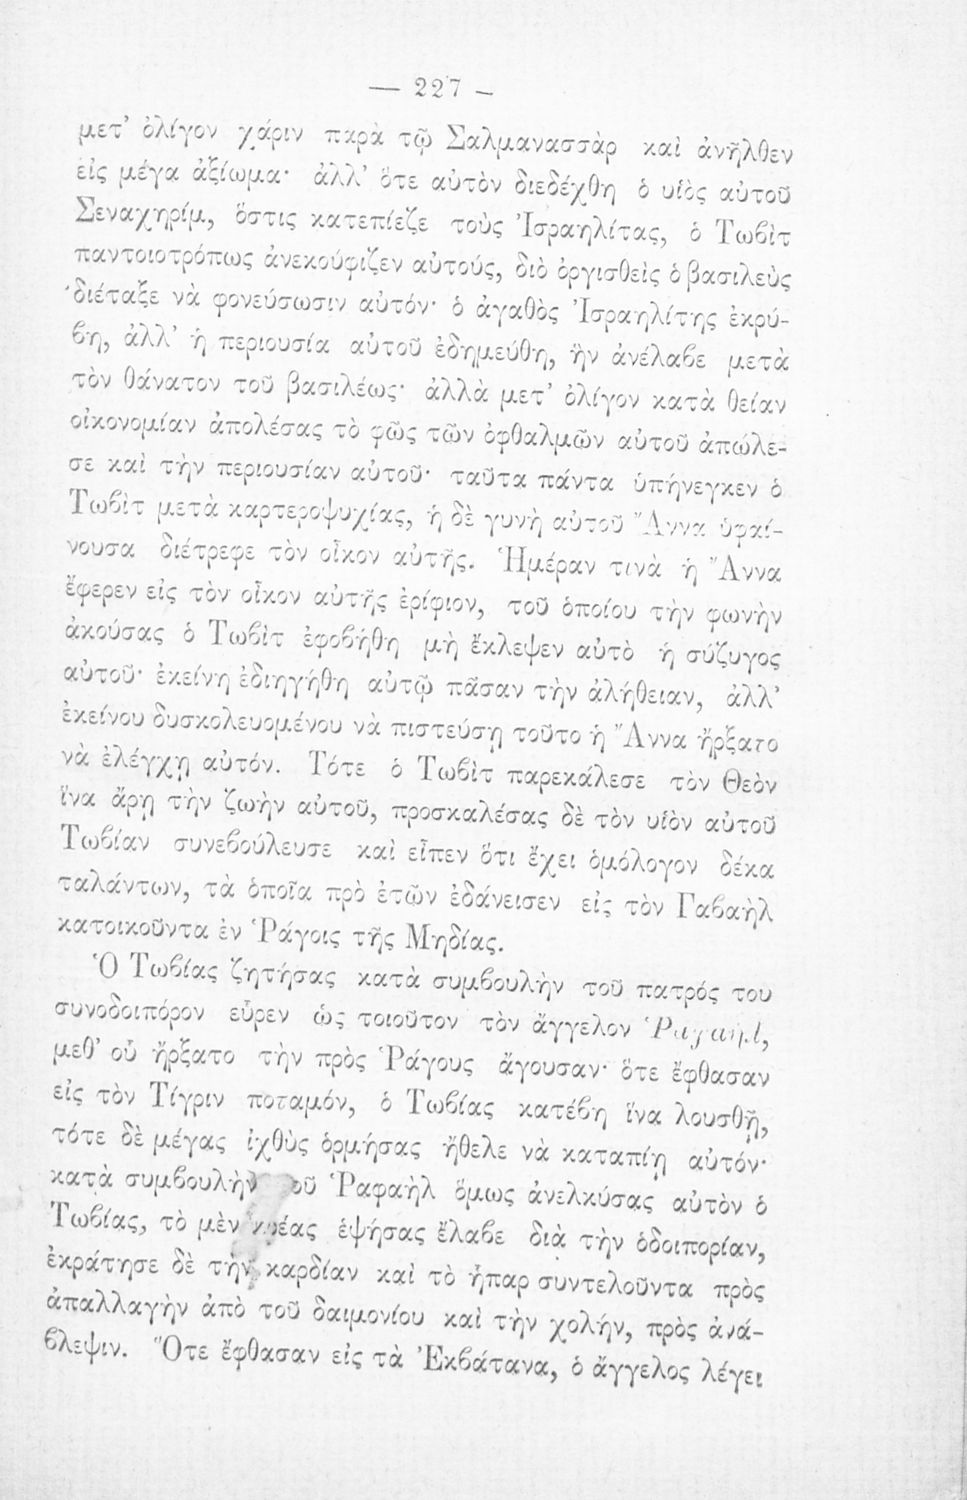 — 227 —
μετ’ ὀλίγον χάριν παρὰ τῷ Σαλμανασσὰρ καὶ ἀνῆλθεν
εἰς μέγα ἀξίωμα· ἀλλ’ ὅτε αὐτὸν διεδέχθη ὁ υἱὸς αὐτοῦ
Σεναχηρίμ, ὅστις κατεπίεζε τοὺς Ἰσραηλίτας, ὁ Τωβὶτ
παντοιοτρόπως ἀνεκούφιζεν αὐτούς, διὸ ὀργισθεὶς ὁ βασιλεὺς
διέταξε νὰ φονεύσωσιν αὐτόν· ὁ ἀγαθὸς Ἰσραηλίτης ἐκρύ-
βη, ἀλλ’ ἡ περιουσία αὐτοῦ ἐδημεύθη, ἣν ἀνέλαβε μετὰ
τὸν θάνατον τοῦ βασιλέως· ἀλλὰ μετ’ ὀλίγον κατὰ θείαν
οἰκονομίαν ἀπολέσας τὸ φῶς τῶν ὀφθαλμῶν αὐτοῦ ἀπώλε-
σε καὶ τὴν περιουσίαν αὐτοῦ· ταῦτα πάντα ὑπήνεγκεν ὁ
Τωβὶτ μετὰ καρτεροψυχίας, ἡ δὲ γυνὴ αὐτοῦ Ἄννα ὑφαί-
νουσα διέτρεφε τὸν οἶκον αὐτῆς. Ἡμέραν τινὰ ἡ Ἄννα
ἔφερεν εἰς τὸν οἶκον αὐτῆς ἐρίφιον, τοῦ ὁποίου τὴν φωνὴν
ἀκούσας ὁ Τωβὶτ ἐφοβήθη μὴ ἔκλεψεν αὐτὸ ἡ σύζυγος
αὐτοῦ· ἐκείνη ἐδιηγήθη αὐτῷ πᾶσαν τὴν ἀλήθειαν, ἀλλ’
ἐκείνου δυσκολευομένου νὰ πιστεύσῃ τοῦτο ἡ Ἄννα ἤρξατο
νὰ ἐλέγχῃ αὐτόν. Τότε ὁ Τωβὶτ παρεκάλεσε τὸν Θεὸν
ἵνα ἄρῃ τὴν ζωὴν αὐτοῦ, προσκαλέσας δὲ τὸν υἱὸν αὐτοῦ
Τωβίαν συνεβούλευσε καὶ εἶπεν ὅτι ἔχει ὁμόλογον δέκα
ταλάντων, τὰ ὁποῖα πρὸ ἐτῶν ἐδάνεισεν εἰς τὸν Γαβαὴλ
κατοικοῦντα ἐν Ῥάγοις τῆς Μηδίας.
Ὁ Τωβίας ζητήσας κατὰ συμβουλὴν τοῦ πατρός του
συνοδοιπόρον εὗρεν ὡς τοιοῦτον τὸν ἄγγελον Ῥαφαήλ,
μεθ’ οὗ ἤρξατο τὴν πρὸς Ῥάγους ἄγουσαν· ὅτε ἔφθασαν
εἰς τὸν Τίγριν ποταμόν, ὁ Τωβίας κατέβη ἵνα λουσθῇ,
τότε δὲ μέγας ἰχθὺς ὁρμήσας ἤθελε νὰ καταπίῃ αὐτόν·
κατὰ συμβουλὴν τοῦ Ῥαφαὴλ ὅμως ἀνελκύσας αὐτὸν ὁ
Τωβίας, τὸ μὲν κρέας ἑψήσας ἔλαβε διὰ τὴν ὁδοιπορίαν,
ἐκράτησε δὲ τὴν καρδίαν καὶ τὸ ἧπαρ συντελοῦντα πρὸς
ἀπαλλαγὴν ἀπὸ τοῦ δαιμονίου καὶ τὴν χολήν, πρὸς ἀνά-
βλεψιν. Ὅτε ἔφθασαν εἰς τὰ Ἐκβάτανα, ὁ ἄγγελος λέγει